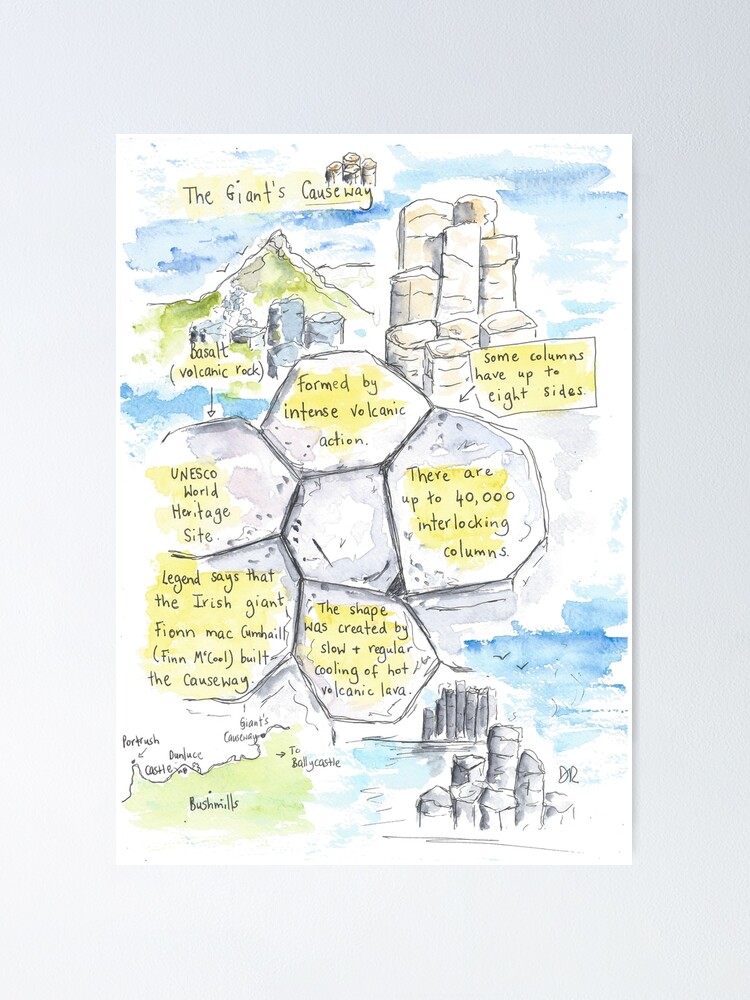 The Giant's Causeway
basalt
(volcanic rock)
Formed by
intense volcanic
action.
Some columns
have up to
eight sides.
UNESCO
World
Heritage
Site.
There are
up to 40,000
interlocking
columns.
Legend says that
the Irish giant
Fionn mac Cumhaill
(Finn McCool) built
the Causeway.
The shape
was created by
slow + regular
cooling of hot
volcanic lava.
Giant's
Causeway
Portrush
Dunluce
Castle
→ To
Ballycastle
Bushmills
DR